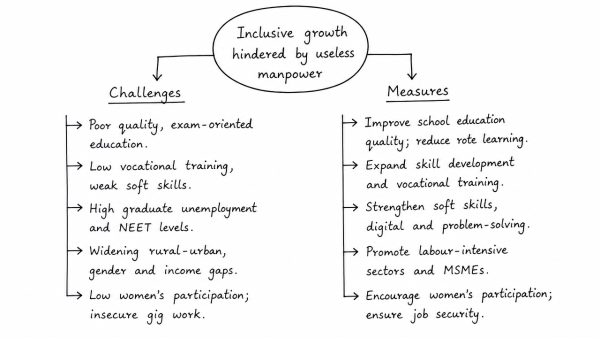 Inclusive growth
hindered by useless
manpower
Challenges
Poor quality, exam-oriented
education.
Low vocational training,
weak soft skills.
High graduate unemployment
and NEET levels.
Widening rural-urban,
gender and income gaps.
Low women's participation;
insecure gig work.
Measures
Improve school education
quality; reduce rote learning.
Expand skill development
and vocational training.
Strengthen soft skills,
digital and problem-solving.
Promote labour-intensive
sectors and MSMEs.
Encourage women's participation;
ensure job security.